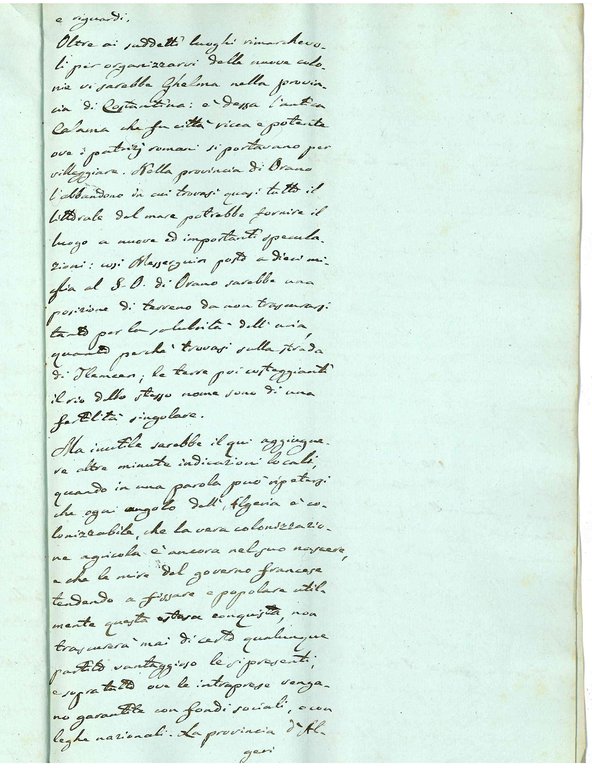 e riguardi.
Oltre ai suddetti luoghi rimarchevo-
li per organizzarvi delle nuove colo-
nie vi sarebbe Ghelma nella provin-
cia di Costantina: è dessa l'antica
Calama che fu città ricca e potente
ove i patrizj romani si portavano per
villeggiare. Nella provincia di Orano
l'abbandono in cui trovasi quasi tutto il
littorale del mare potrebbe fornire il
luogo a nuove ed importanti specula-
zioni: così Messerguin posto a dieci mi-
glia al S. O. di Orano sarebbe una
posizione di terreno da non trascurarsi
tanto per la salubrità dell'aria,
quanto perchè trovasi sulla strada
di Tlemcen; le terre poi costeggianti
il rio dello stesso nome sono di una
fertilità singolare.
Ma inutile sarebbe il qui aggiugne-
re altre minute indicazioni locali,
quando in una parola può ripetersi
che ogni angolo dell'Algeria è co-
lonizzabile, che la vera colonizzazio-
ne agricola è ancora nel suo nascere,
e che le mire del governo francese
tendendo a fissare e popolare util-
mente questa estesa conquista, non
trascurerà mai di certo qualunque
partito vantaggioso le si presenti,
e sopratutto ove le intraprese venga-
no garantite con fondi sociali, e con
leghe nazionali. La provincia d'Al-
geri